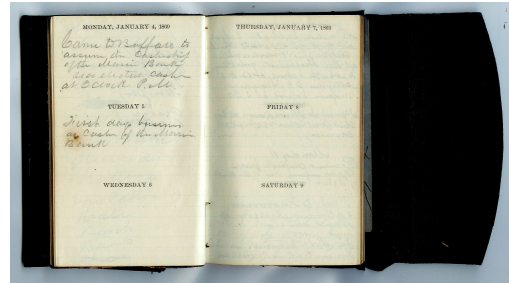 MONDAY, JANUARY 4, 1869
Came to Buffalo to
assume the Cashiership
of the Marine Bank
was elected Cash
at O'Clock P.M.
TUESDAY 5
First day business
as Cash of the Marine
Bank
WEDNESDAY 6
THURSDAY, JANUARY 7, 1869
FRIDAY 8
SATURDAY 9